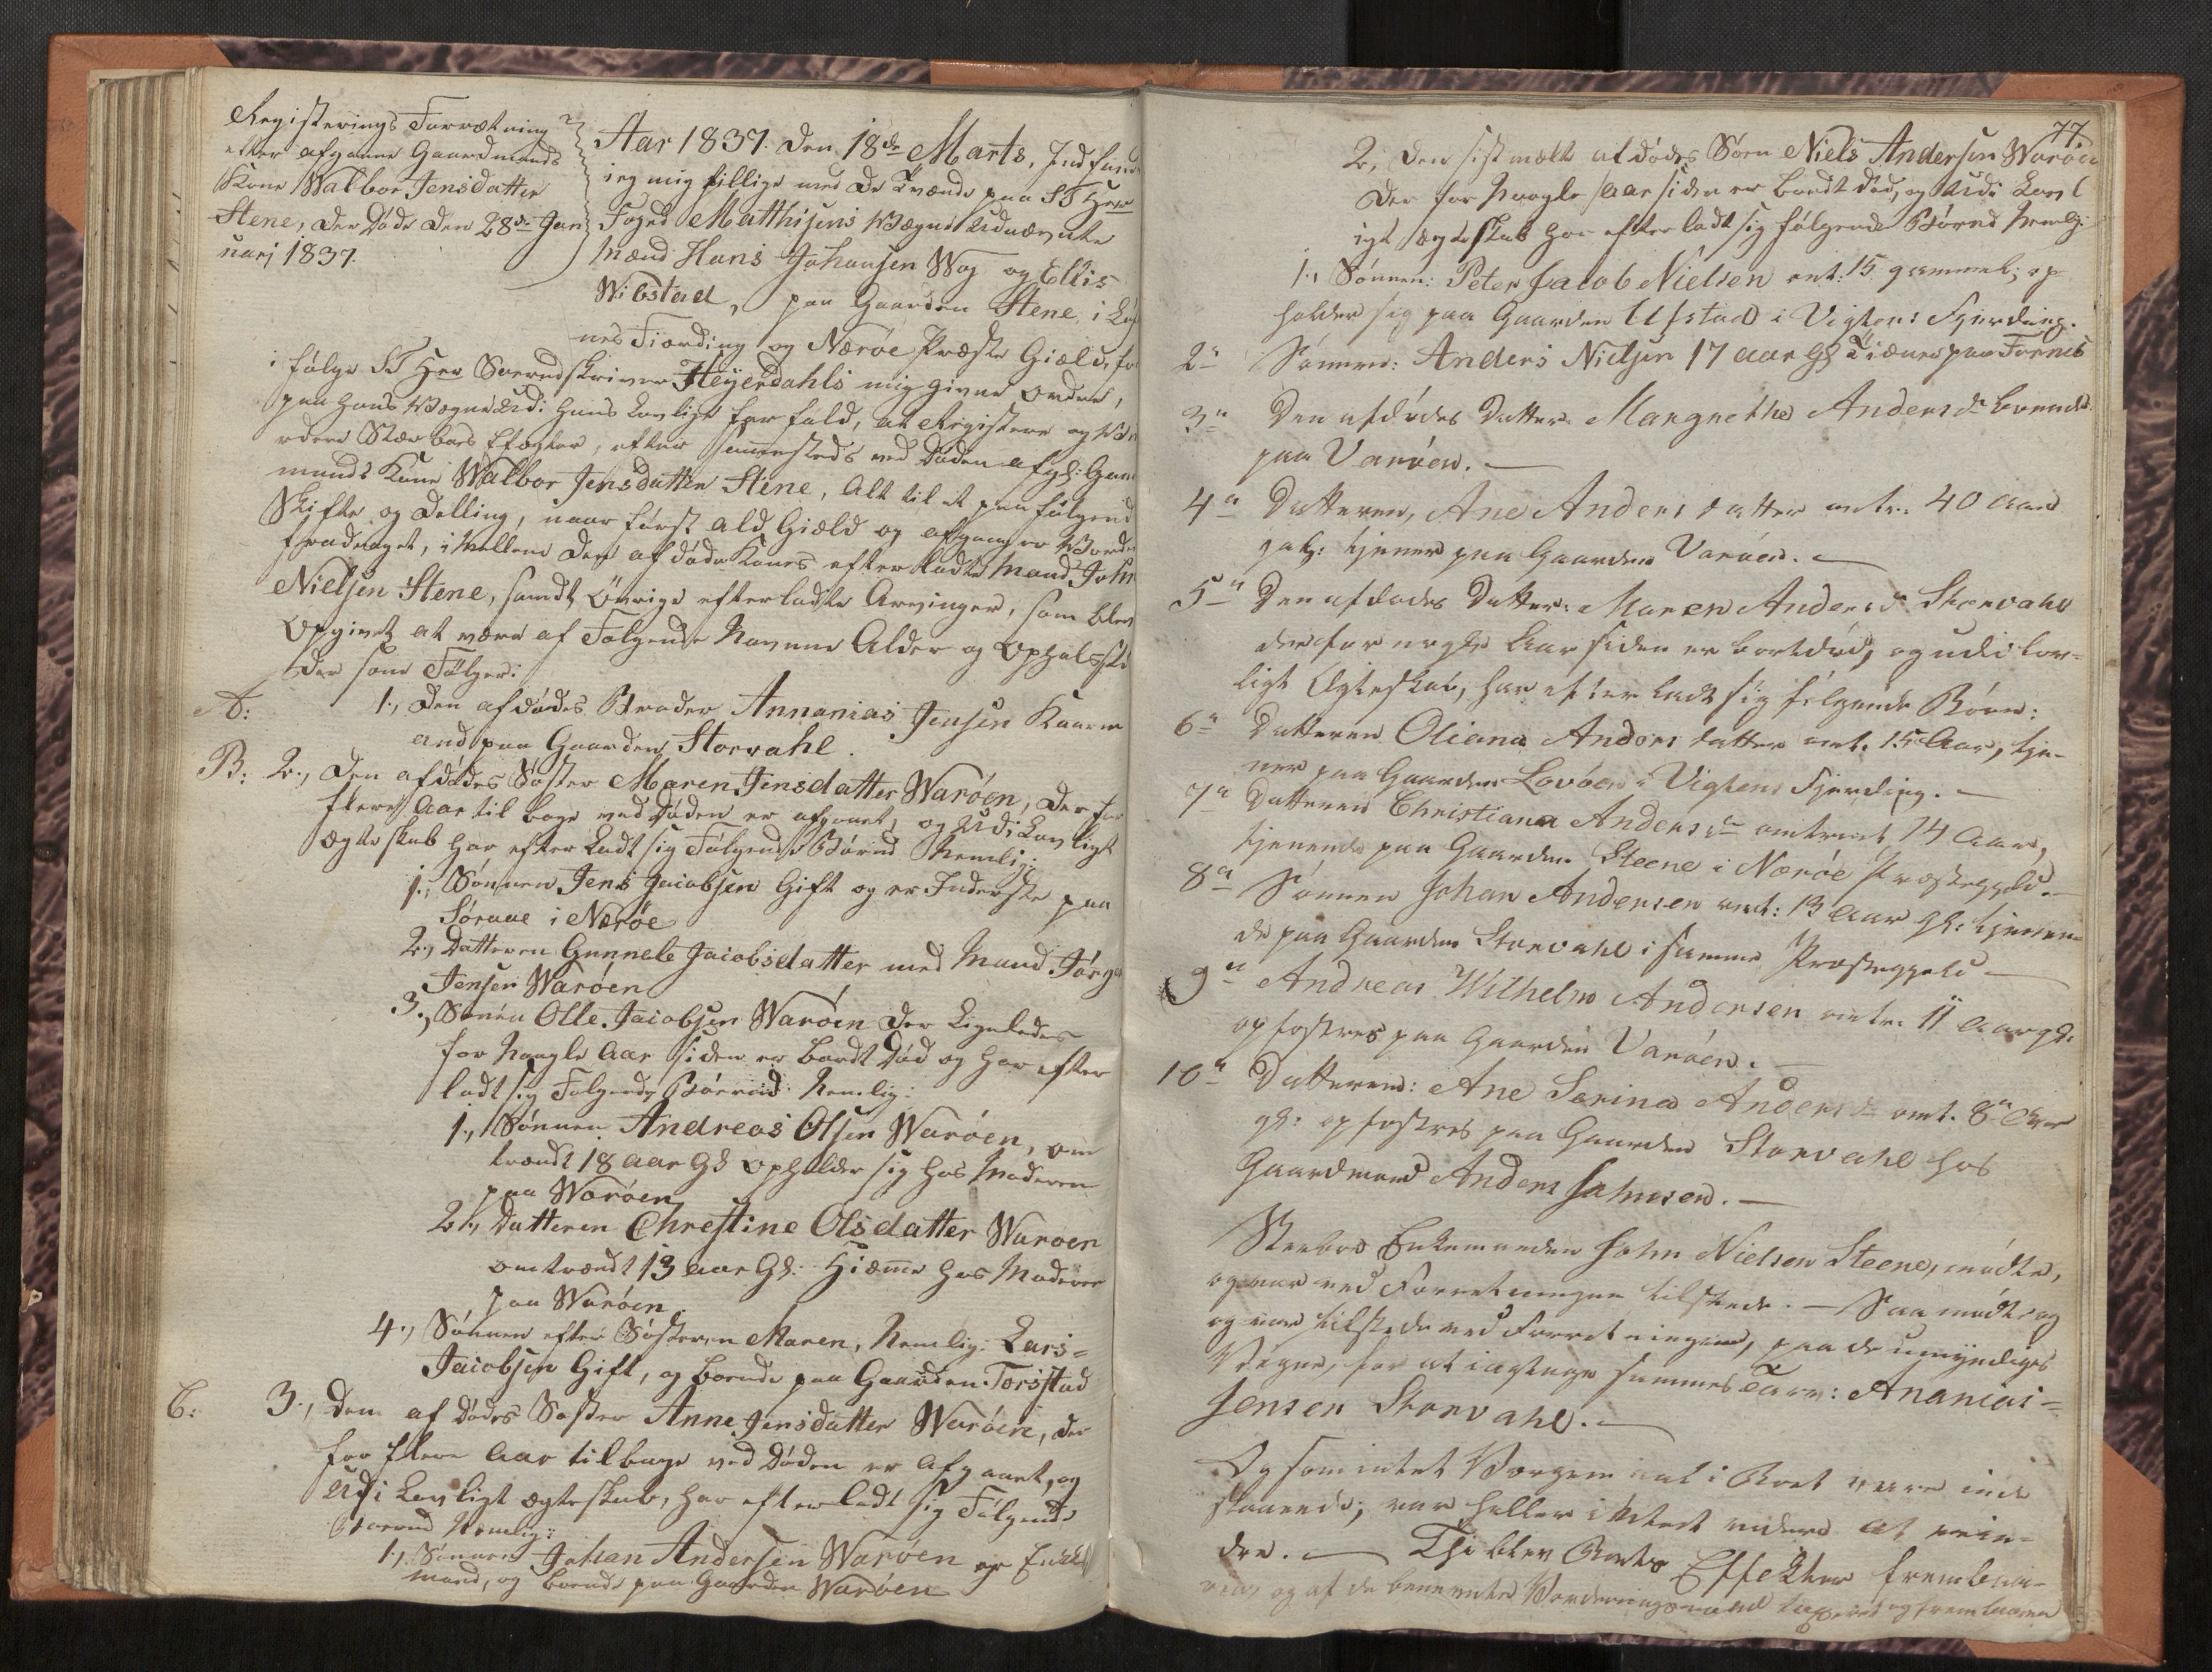 Registerings Forretning
efter afgangne Gaardmands
Kone Walbor Jensdatter
Stene, der døde den 28de Jan
uarj 1837.
Aar 1837. den 18de Marts, Indfandt
ieg mig tillige med de tvende paa S T Herr
Foged Matthisens Vegne Udnævnte
Mænd Hans Johansen Wog og Ellis
Wibstad, paa Gaarden Stene i
nes Fiording og Nærøe Præste Giæld, for
i følge S T Herr Sorendskriver Heyerdahls mig givne Ordre,
paa hans Vegne udi hans Lovlige forfald, at Registere og
rdere Stervboes Efecter, efter sammesteds ved Døden afg: Gaard
mands Kone Walbor Jensdatter Stene, Alt til et paafølgend
Skifte og Delling, naar først ald Giæld og afganger vorder
fradraget, imellem den afdøde Kones efterladte Mand John
Nielsen Stene, samdt øvrige efterladte Arvinger, som blev
Opgivet at være af Følgende Navnne Alder og Opholsste
der som Følger:
A: 1., Den afdødes Broder Annanias Jensen Kaarm
and paa Gaarden Storvahl.
B: 2., Den afdødes Søster Maren Jensdatter Warøen, der for
flere Aar tilbage ved Døden er afgaaet, og Udi Lovligt
Ægteskab har efter Ladt sig Følgende Børnd Nemlig:
1., Sønnen Jens Jacobsen Gift og er Inderste paa
Søraae i Nærøe
2., Datteren Gunnele Jacobsdatter med Mand Jørg
Jensen Warøen
3., Sønen Olle Jacobsen Warøen der Ligeledes
for Nogle Aar siden er bordt Død og har efter
ladt sig Følgende Børnd Nemlig:
1., Sønnen Andreas Olsen Warøen, om
trendt 18 aar Gl opholder sig hos Moderen
paa Warøen
2., Datteren Chrestine Olsdatter Warøen
omtrendt 13 aar Gl: Hiæme hos Moderen
paa Warøen.
4., Sønnen efter Søsteren Maren, Nemlig: Lars=
Jacobsen Gift, og boende paa Gaarden Torsstad
C: 3., Den af dødes Søster Anne Jensdatter Warøen, der
for flere Aar tilbage ved Døden er Afgaaet, og
Udi Lovligt Ægteskab, har efterladt sig Følgende
Børend Nemlig:
1., Sønnen Johan Andersen Warøen er Enke
mand, og boende paa Gaarden Warøen
77.
2, Den sistmælte afdødes Søen Niels Andersen Warøen
der for Noogle Aar siden er bordt død, og Udi Lovl
igt Ægteskab har efterladt sig følgende Børnd Nemlg:
1., Sønnen: Peter Jacob Nielsen omt: 15 gammel; op
holder sig paa Gaarden Ufstad i Vigtens Fjerding.
2" Sønnen: Anders Nielsen 17 aar Gl Tiener paa Fornes
3" Den afdødes Datter Margrethe Andersdr boende
paa Varøen. —
4" Datteren, Ane Andersdatter omtr: 40 Aar
gal: tjener paa Gaarden Varøen. —
5" Den afdødes Datter: Maren Andersdr Storvahl
der for nogle Aar siden er bortdød, og udi lov-
ligt Ægteskab, har efterladt sig følgende Børn:
6" Datteren Oliana Andersdatter omt. 15 Aar, tje-
ner paa Gaarden Lovøen i Vigtens Fjerding. —
7" Datteren Christiana Andersdr omtrent 14 Aar,
tjenende paa Gaarden Steene i Nærøe Præstegjeld. —
8" Sønnen Johan Andersen omt: 13 Aar gl: tjenen-
de paa Gaarden Storvahl i samme Præstegjeld —
9" Andreas Wilhelm Andersen omtr: 11 Aar gl.
opfostres paa Gaarden Varøen. —
10" Datteren: Ane Serina Andersdr omt. 8 Aar
gl: opfostres paa Gaarden Storvahl hos
Gaardmand Anders Johnsen. —
Sterboe Enkemanden John Nielsen Steene, mødte,
og var ved Forretningen tilstede. — Saa mødte og
og var tilstede ved Forretningen, paa de umyndiges
Vegne, for at iagtage sammes Tarv: Ananias=
Jensen Storvahl. —
Og som intet Værgemaal i Boet være inde
staaende; var heller ikke videre at erin-
dre. — Thi blev Boets Effekter frembaa-
ren, og af de benevnte Vorderingsmænd taxeret og frembaaren